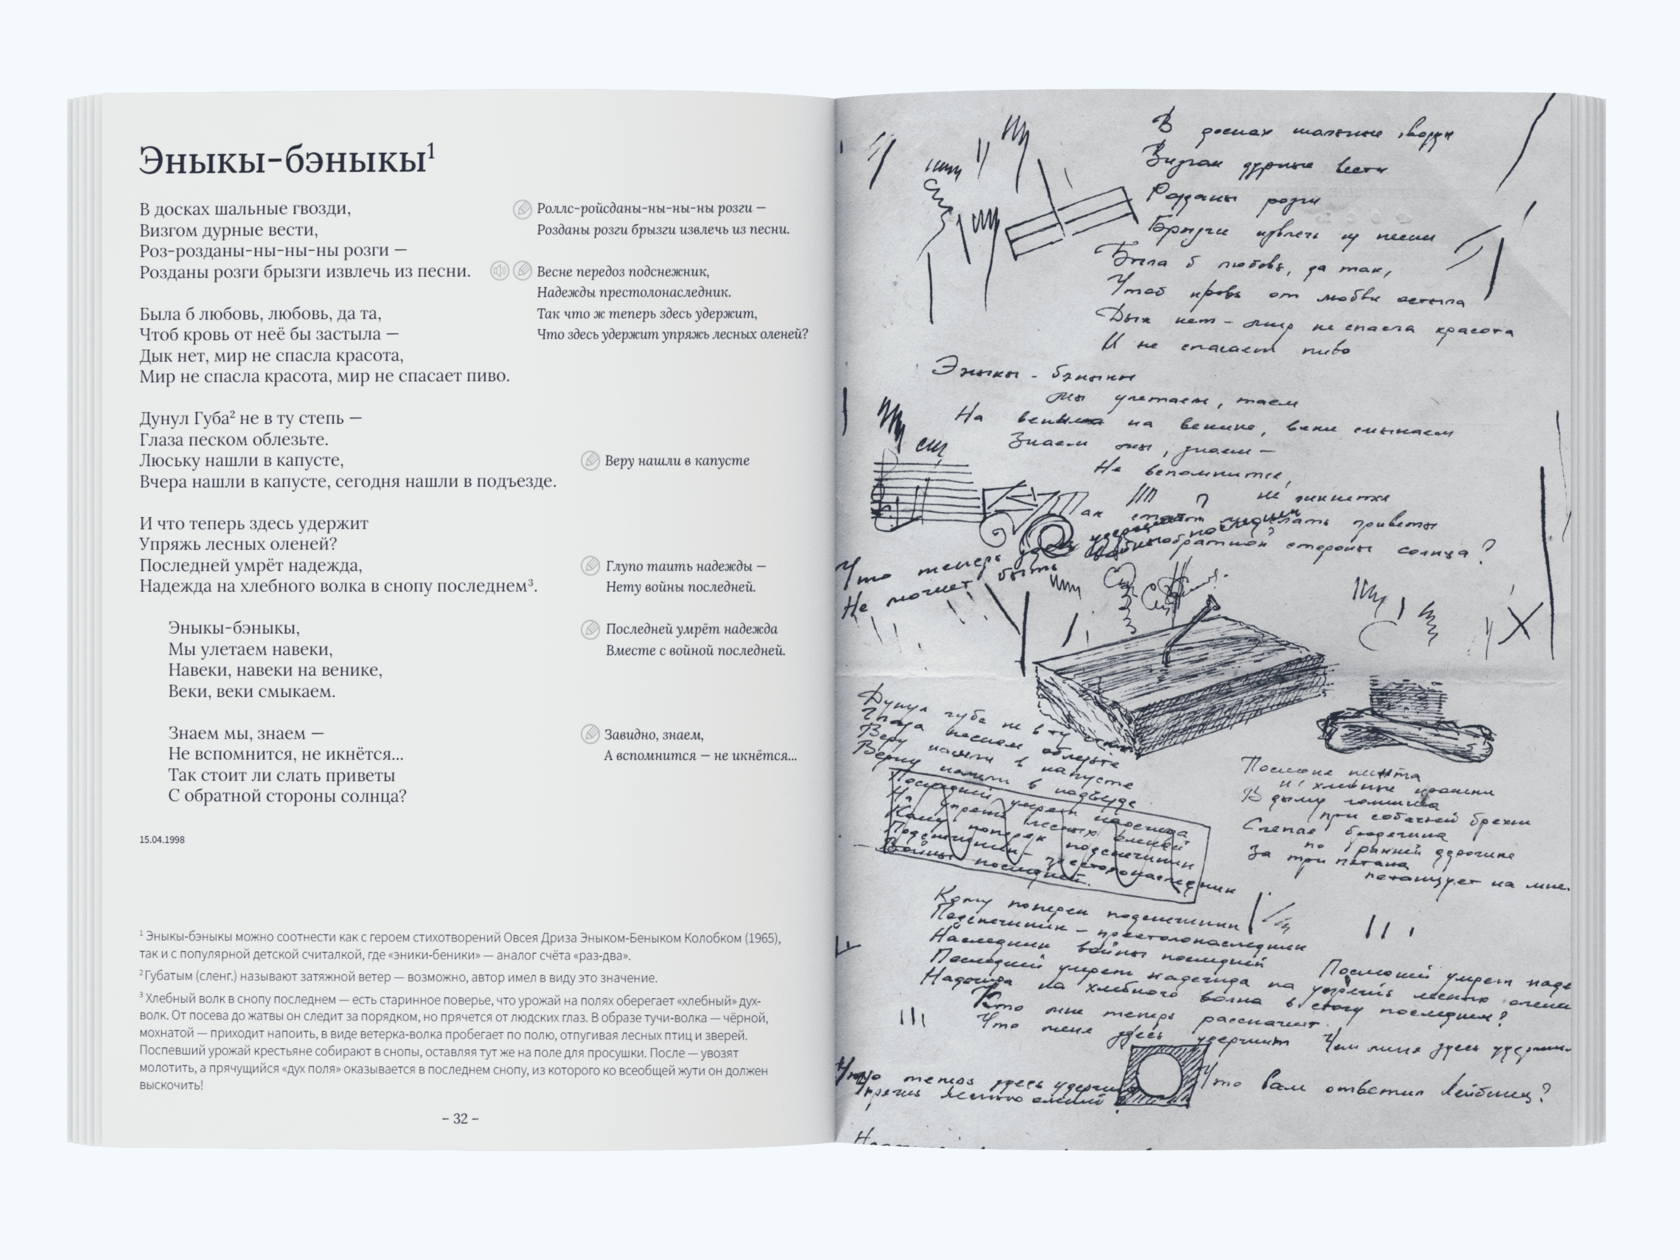 Эныкы-бэныкы¹
В досках шальные гвозди,
Визгом дурные вести,
Роз-розданы-ны-ны-ны розги —
Розданы розги брызги извлечь из песни.
Была б любовь, любовь, да та,
Чтоб кровь от неё бы застыла —
Дык нет, мир не спасла красота,
Мир не спасла красота, мир не спасает пиво.
Дунул Губа² не в ту степь —
Глаза песком облезьте.
Люську нашли в капусте,
Вчера нашли в капусте, сегодня нашли в подъезде.
И что теперь здесь удержит
Упряжь лесных оленей?
Последней умрёт надежда,
Надежда на хлебного волка в снопу последнем³.
Эныкы-бэныкы,
Мы улетаем навеки,
Навеки, навеки на венике,
Веки, веки смыкаем.
Знаем мы, знаем —
Не вспомнится, не икнётся...
Так стоит ли слать приветы
С обратной стороны солнца?
15.04.1998
Роллс-ройсданы-ны-ны-ны розги —
Розданы розги брызги извлечь из песни.
Весне передоз подснежник,
Надежды престолонаследник.
Так что ж теперь здесь удержит,
Что здесь удержит упряжь лесных оленей?
Веру нашли в капусте
Глупо таить надежды —
Нету войны последней.
Последней умрёт надежда
Вместе с войной последней.
Завидно, знаем,
А вспомнится — не икнётся...
¹ Эныкы-бэныкы можно соотнести как с героем стихотворений Овсея Дриза Эныком-Беныком Колобком (1965),
так и с популярной детской считалкой, где «эники-беники» — аналог счёта «раз-два».
² Губатым (сленг.) называют затяжной ветер — возможно, автор имел в виду это значение.
³ Хлебный волк в снопу последнем — есть старинное поверье, что урожай на полях оберегает «хлебный» дух-
волк. От посева до жатвы он следит за порядком, но прячется от людских глаз. В образе тучи-волка — чёрной,
мохнатой — приходит напоить, в виде ветерка-волка пробегает по полю, отпугивая лесных птиц и зверей.
Поспевший урожай крестьяне собирают в снопы, оставляя тут же на поле для просушки. После — увозят
молотить, а прячущийся «дух поля» оказывается в последнем снопу, из которого ко всеобщей жути он должен
выскочить!
– 32 –
В досках шальные гвозди
Визгом дурные вести
Розданы розги
Брызги извлечь из песни
Была б любовь, да так,
Чтоб кровь от любви остыла
Дык нет – мир не спасла красота
И не спасает пиво
Эныкы - бэныкы
Мы улетаем, таем
На венике, веки смыкаем
Знаем мы, знаем —
Не вспомнится,
не икнётся
Так стоит приветы
обратной стороны солнца?
Что теперь здесь
Не может быть
Дунул губа не в ту степь
Глаза песком облезьте
Веру нашли в капусте
Верку нашли в подъезде
Последней умрет надежда
лесных оленей
Кому поперек подснежники
Подснежник – престолонаследник
Войны последней.
и хлебные крошки
В дыму
при собачей брехни
Слепая
по ранней дорожке
За три петака
на мне.
Кому поперек подснежники
Подснежник – престолонаследник
Наследник войны последней
Последней умрет надежда
Надежда на хлебного волка в стогу последнем?
Кто мне теперь расскажет
Что меня здесь удержит
Последней умрет
на упряжь лесного оленя
Чем меня здесь
Что теперь здесь удержит
Упряжь лесного оленя?
Что Вам ответил Лейбниц?